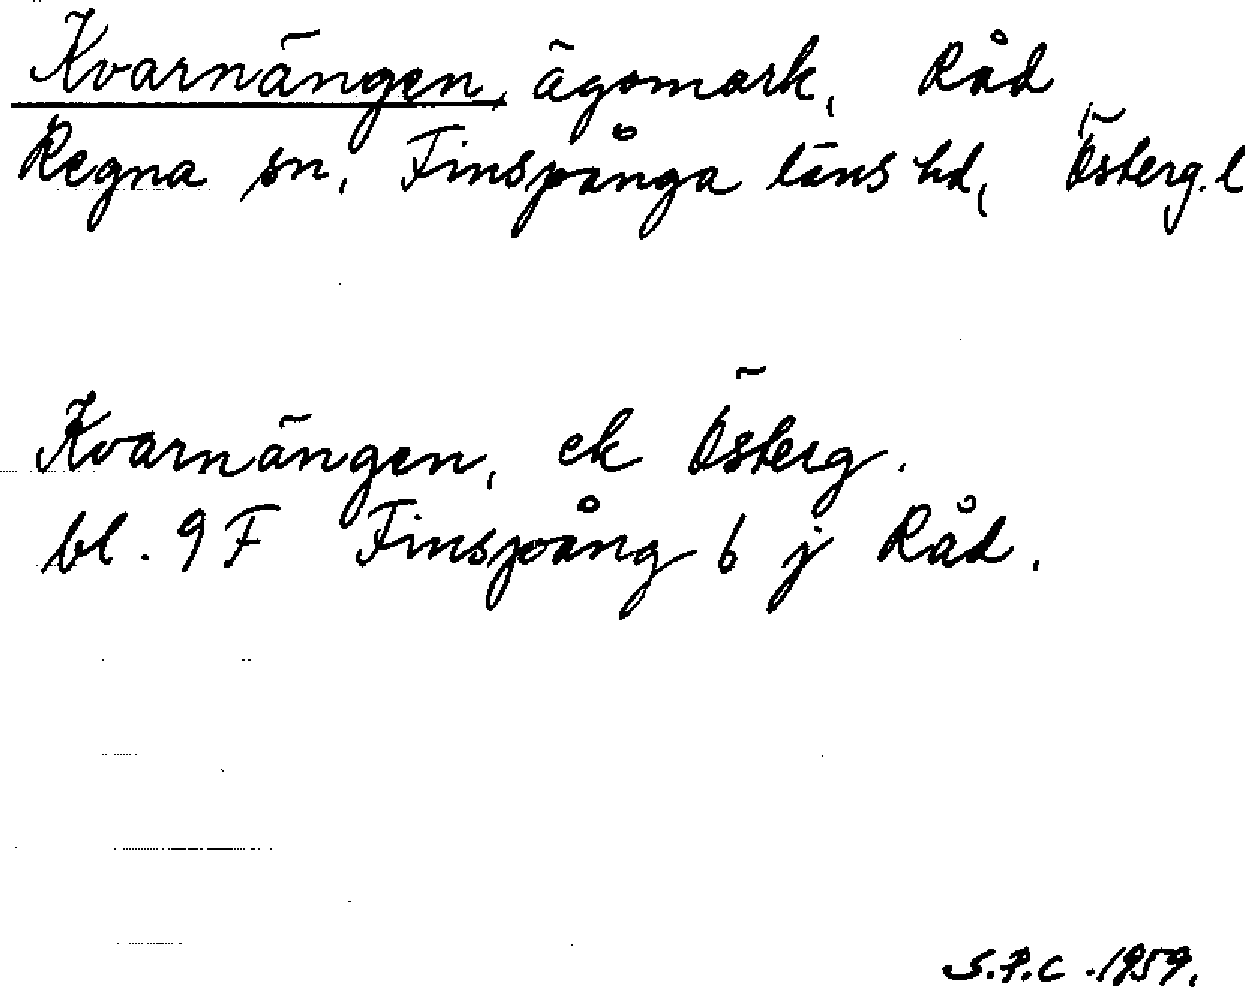 Kvarnängen, ägomark, Råd
Regna sn, Finspånga läns hd, Österg.l
Kvarnängen, ek Österg.
bl. 9F Finspång 6 j Råd.
S.P.C. 1959.